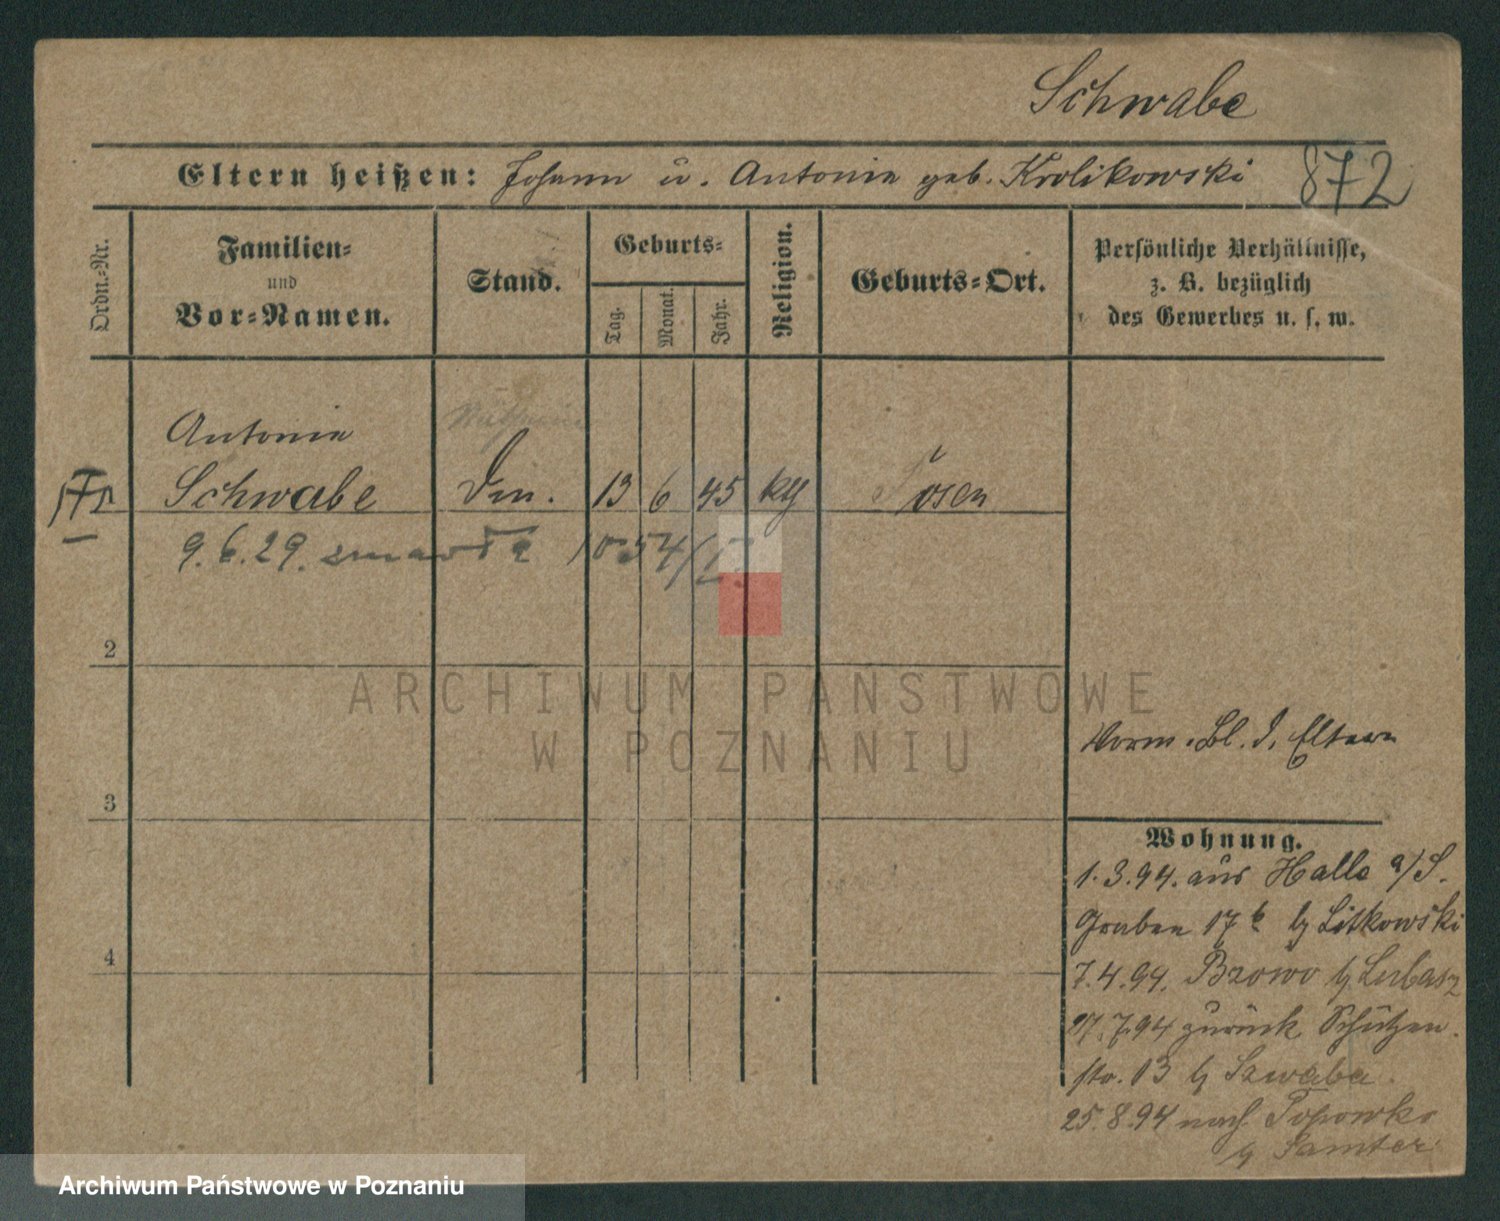 Schwabe
Eltern heißen: Johann u. Antonie geb. Krolikowski 872
Ordn.-Nr.
Familien-
und
Vor-Namen.
Stand.
Geburts-
Tag.
Monat.
Jahr.
Religion.
Geburts-Ort.
Persönliche Verhältnisse,
z. B. bezüglich
des Gewerbes u. s. w.
Antonie
Schwabe 13 6 45 kth Posen
9.6.29. zmarła 1054/
2
ARCHIWUM PAŃSTWOWE
W POZNANIU
Vorm. Bl. d. Eltern
3
Wohnung.
1.3.94. aus Halle a/S.
Graben 17b b/ Litkowski
7.4.94. Brzowo b/ Lubasz
27.7.94 zurück Schützen-
str. 13 b/ Szwaba.
25.8.94 nach Popowko
b/ Samter
4
Archiwum Państwowe w Poznaniu